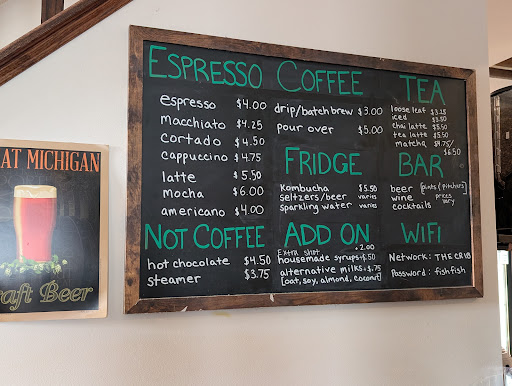 AT MICHIGAN
raft Beer
ESPRESSO
espresso $4.00
macchiato $4.25
cortado $4.50
cappuccino $4.75
latte $5.50
mocha $6.00
americano $4.00
NOT COFFEE
hot chocolate $4.50
steamer $3.75
COFFEE
drip/batch brew $3.00
pour over $5.00
FRIDGE
Kombucha $5.50
seltzers/beer varies
sparkling water varies
ADD ON
Extra shot +2.00
housemade syrups +.50
alternative milks +.75
[oat, soy, almond, coconut]
TEA
loose leaf $3.25
iced $3.50
chai latte $5.50
tea latte $5.50
matcha $4.75/
$6.50
BAR
beer [pints/pitchers]
wine prices
cocktails vary
WIFI
Network: THE CRIB
Password: fishfish